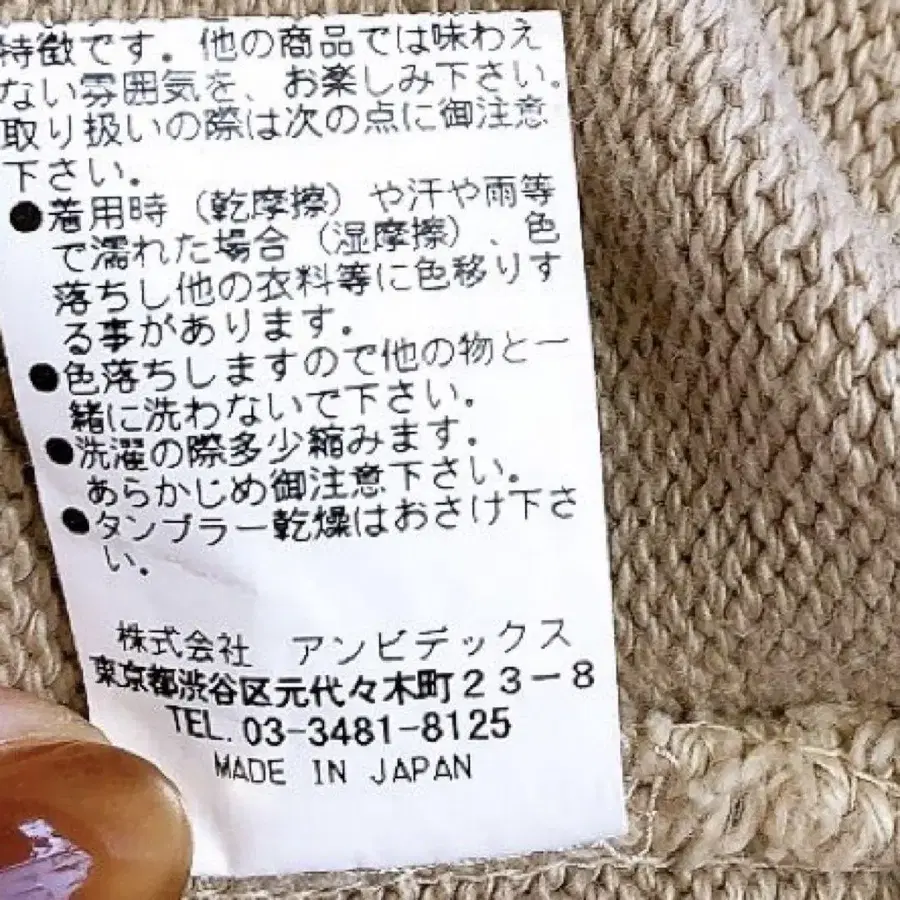 特徴です。他の商品では味わえ
ない雰囲気を、お楽しみ下さい。
取り扱いの際は次の点に御注意
下さい。
●着用時（乾摩擦）や汗や雨等
で濡れた場合（湿摩擦）、色
落ちし他の衣料等に色移りす
る事があります。
●色落ちしますので他の物と一
緒に洗わないで下さい。
●洗濯の際多少縮みます。
あらかじめ御注意下さい。
●タンブラー乾燥はおさけ下さ
い。
株式会社 アンビデックス
東京都渋谷区元代々木町23-8
TEL.03-3481-8125
MADE IN JAPAN